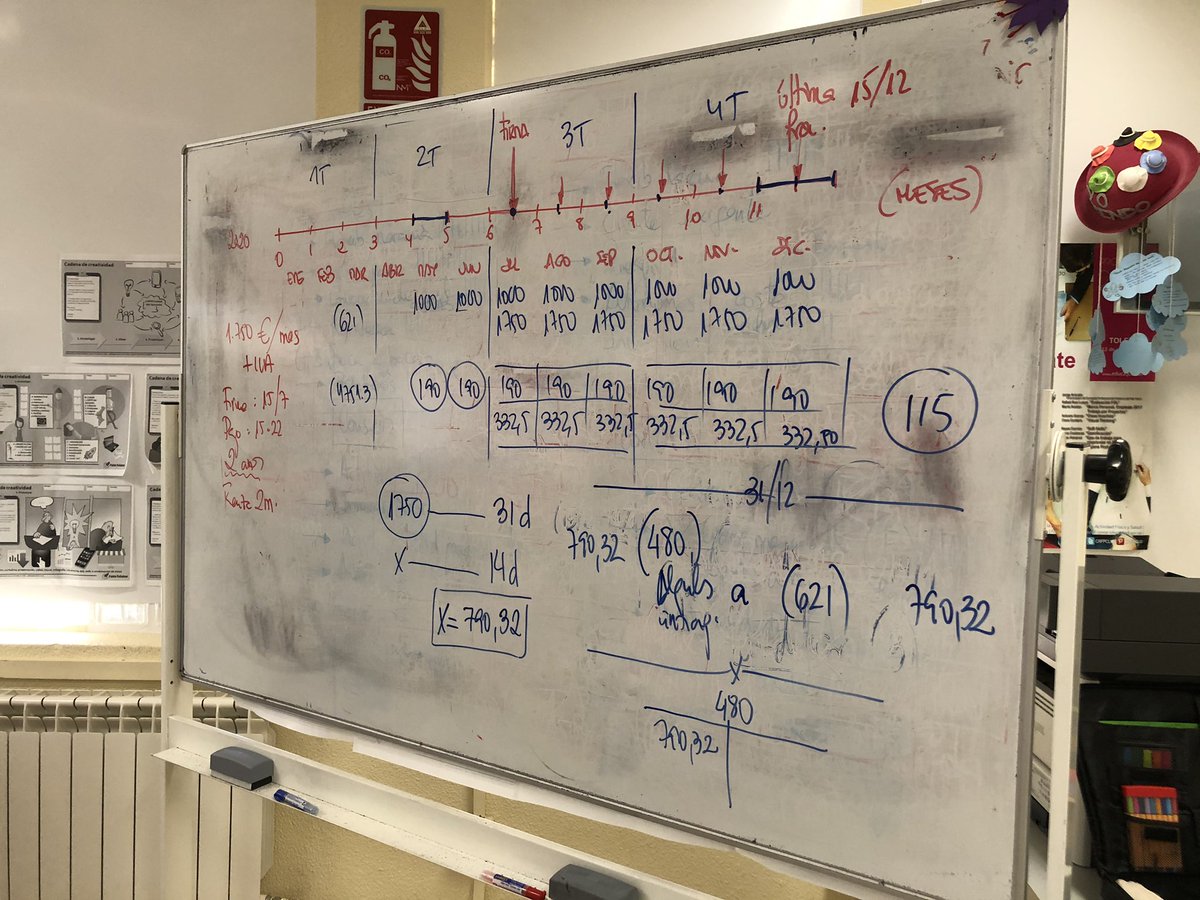 CO₂
CO₂
Firma
1T
2T
3T
4T
última 15/12
fra.
(MESES)
2020
0 1 2 3 4 5 6 7 8 9 10 11
ENE FEB MAR ABR MAY JUN JUL AGO SEP OCT. NOV. DIC.
(621) 1000 1000 1000 1000 1000 1000 1000 1000
1750 1750 1750 1750 1750 1750
1.750 €/mes
+IVA
Firma: 15/7
Pago: 15-22
2 años
Renta 2m.
(4751.3) 190 190 190 190 190 190 190 190
332,5 332,5 332,5 332,5 332,5 332,50
115
31/12
1750 31d
X 14d
X = 790,32
790,32 (480)
a (621) 790,32
480
790,32
Cuadro de creatividad